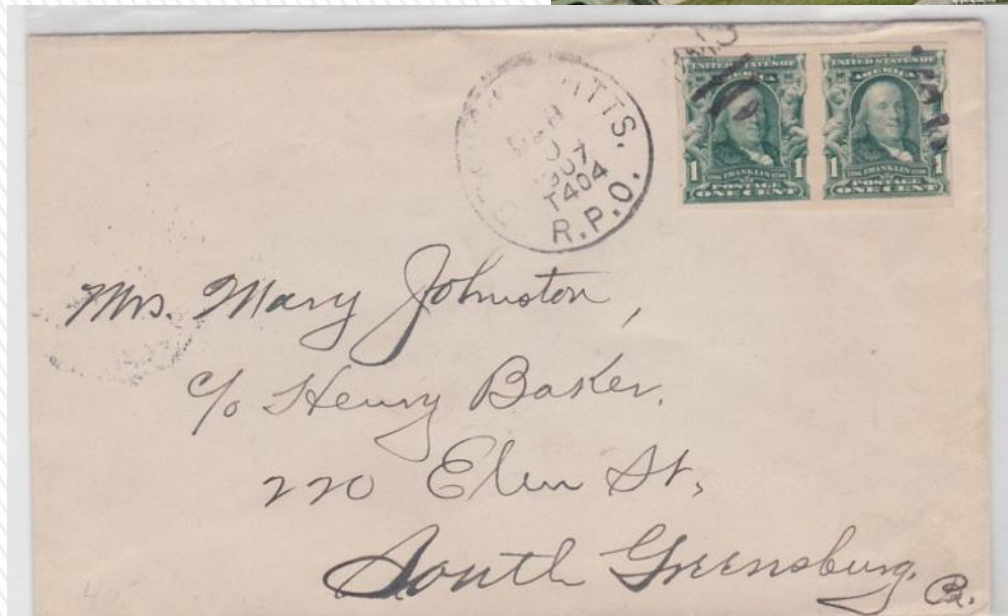 PITTS.
1907
T404
R.P.O.
UNITED STATES OF AMERICA
1 1
FRANKLIN
POSTAGE
ONE CENT
UNITED STATES OF AMERICA
1 1
FRANKLIN
POSTAGE
ONE CENT
Mrs. Mary Johnston,
c/o Henry Baker.
220 Elm St,
South Greensburg. Pa.